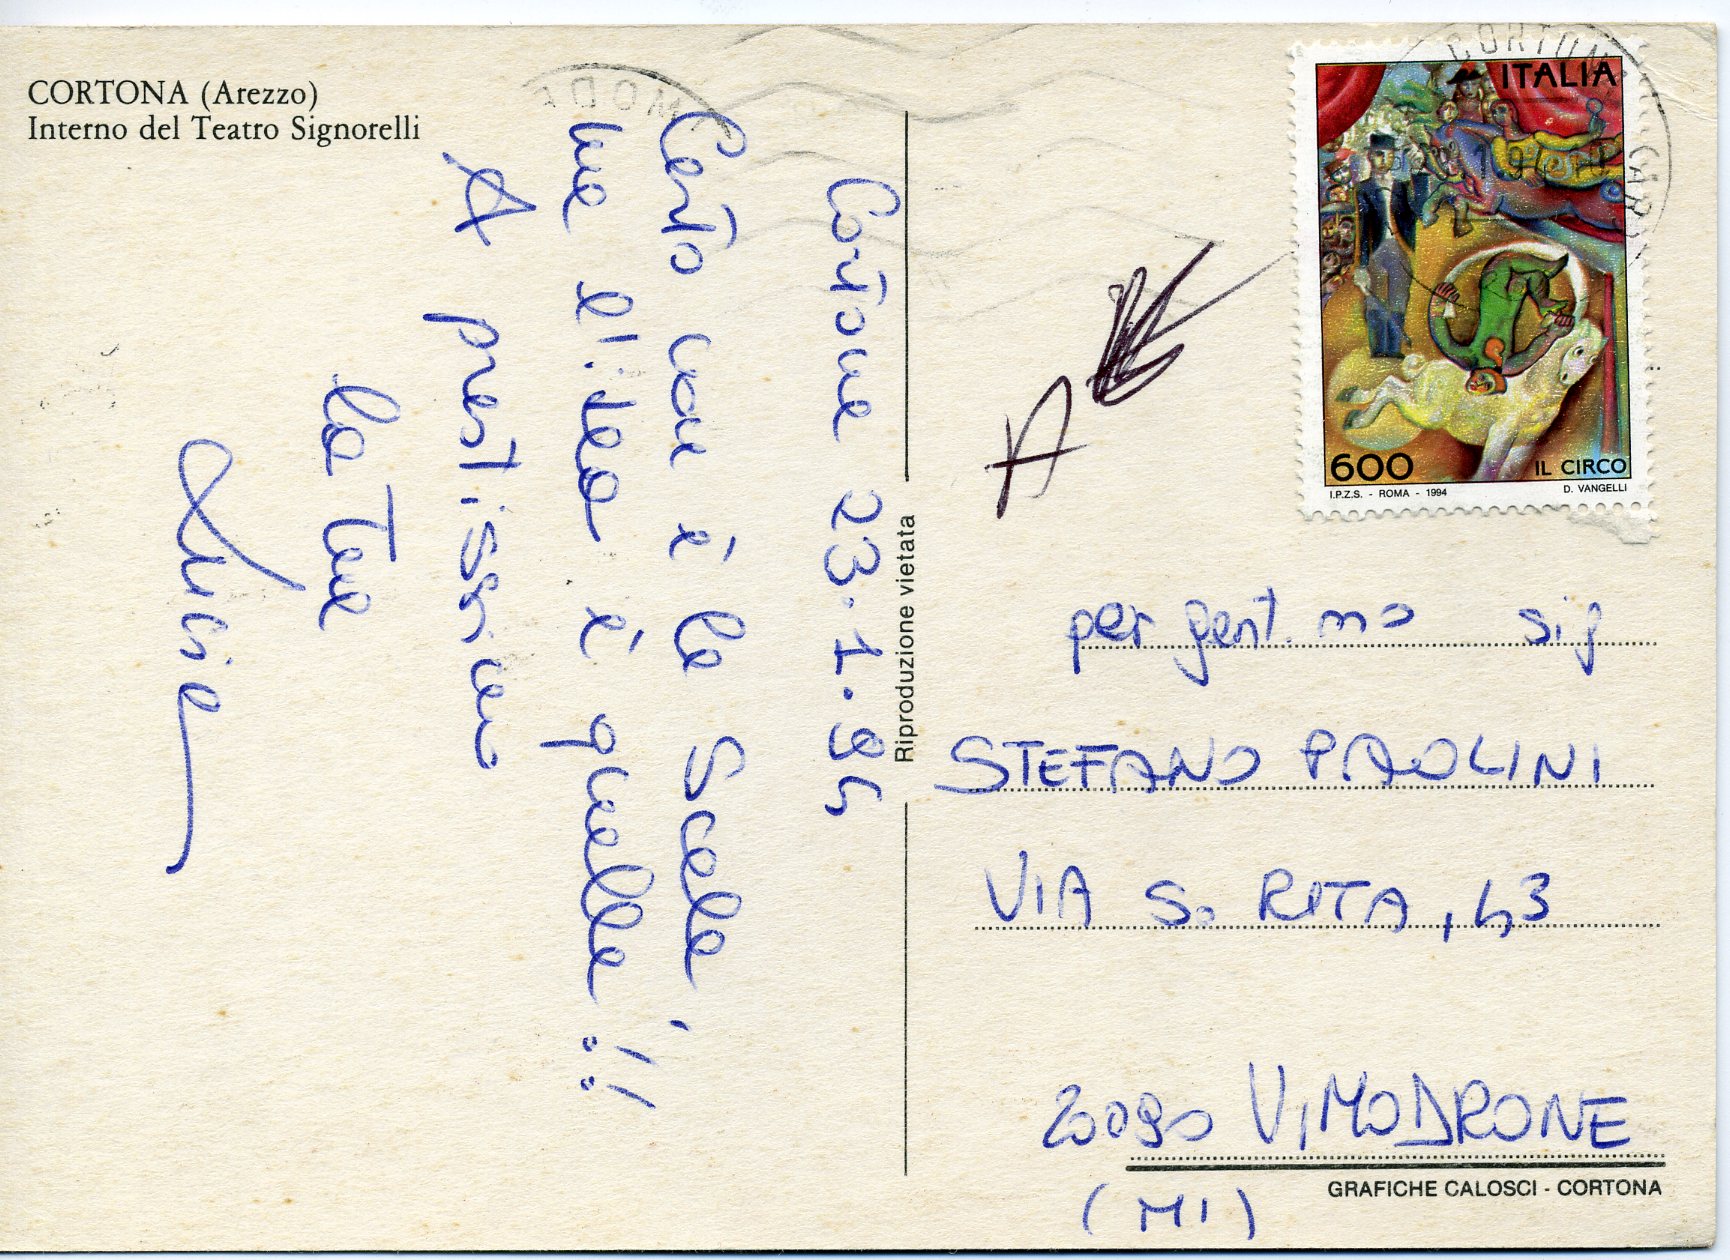 CORTONA (Arezzo)
Interno del Teatro Signorelli
Cortona 23.1.94
Certo non è la Scala,
ma l'idea è quella!!
A prestissimo
la Tua
Reproduzione vietata
ITALIA
600
IL CIRCO
I.P.Z.S. - ROMA - 1994
D. VANGELLI
A
per gent.mo sig
STEFANO PAOLINI
VIA S. RITA, 43
20090 VIMODRONE
(MI)
GRAFICHE CALOSCI - CORTONA